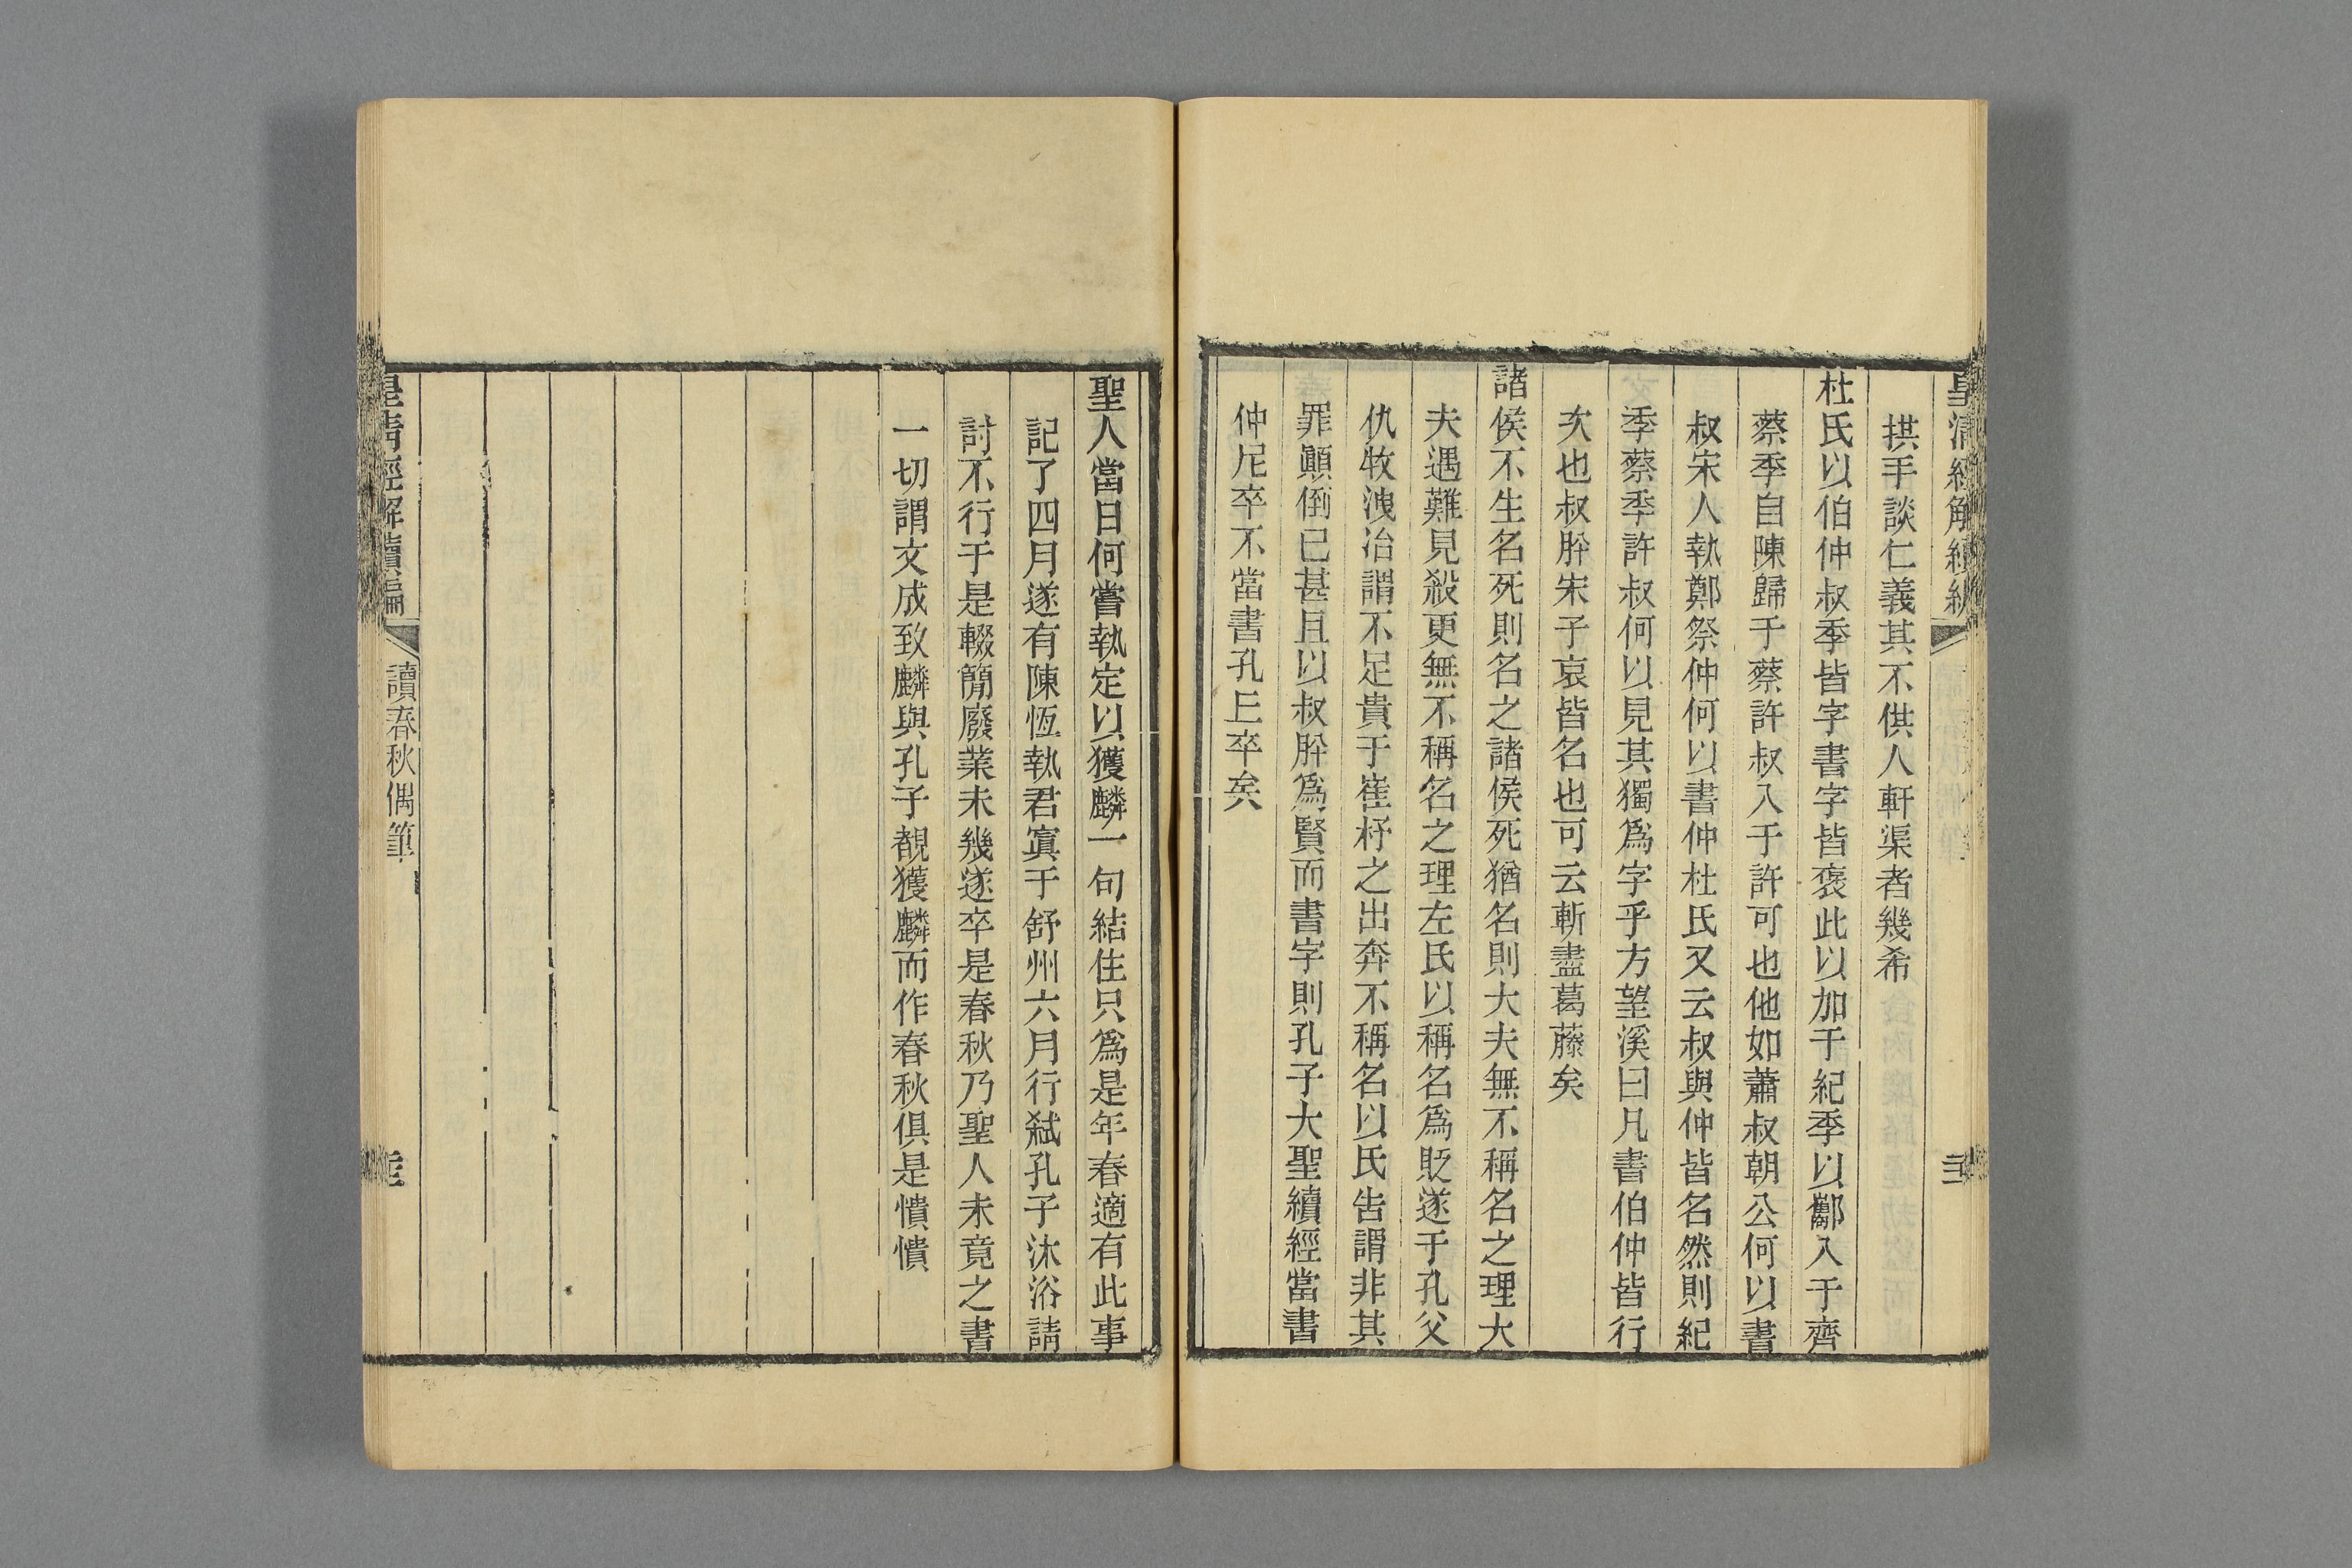 皇清經解續編
拱手談仁義其不供人軒渠者幾希
杜氏以伯仲叔季皆字書字皆褒此以加于紀季以酅入于齊
蔡季自陳歸于蔡許叔入于許可也他如蕭叔朝公何以書
叔宋人執鄭祭仲何以書仲杜氏又云叔與仲皆名然則紀
季蔡季許叔何以見其獨爲字乎方望溪曰凡書伯仲皆行
次也叔肸宋子哀皆名也可云斬盡葛藤矣
諸侯不生名死則名之諸侯死猶名則大夫無不稱名之理大
夫遇難見殺更無不稱名之理左氏以稱名爲貶遂于孔父
仇牧洩冶謂不足貴于崔杼之出奔不稱名以氏告謂非其
罪顚倒已甚且以叔肸爲賢而書字則孔子大聖續經當書
仲尼卒不當書孔丘卒矣
聖人當日何嘗執定以獲麟一句結住只爲是年春適有此事
記了四月遂有陳恆執君寘于舒州六月行弒孔子沐浴請
討不行于是輟簡廢業未幾遂卒是春秋乃聖人未竟之書
一切謂文成致麟與孔子覩獲麟而作春秋俱是憒憒
皇清經解續編
讀春秋偶筆